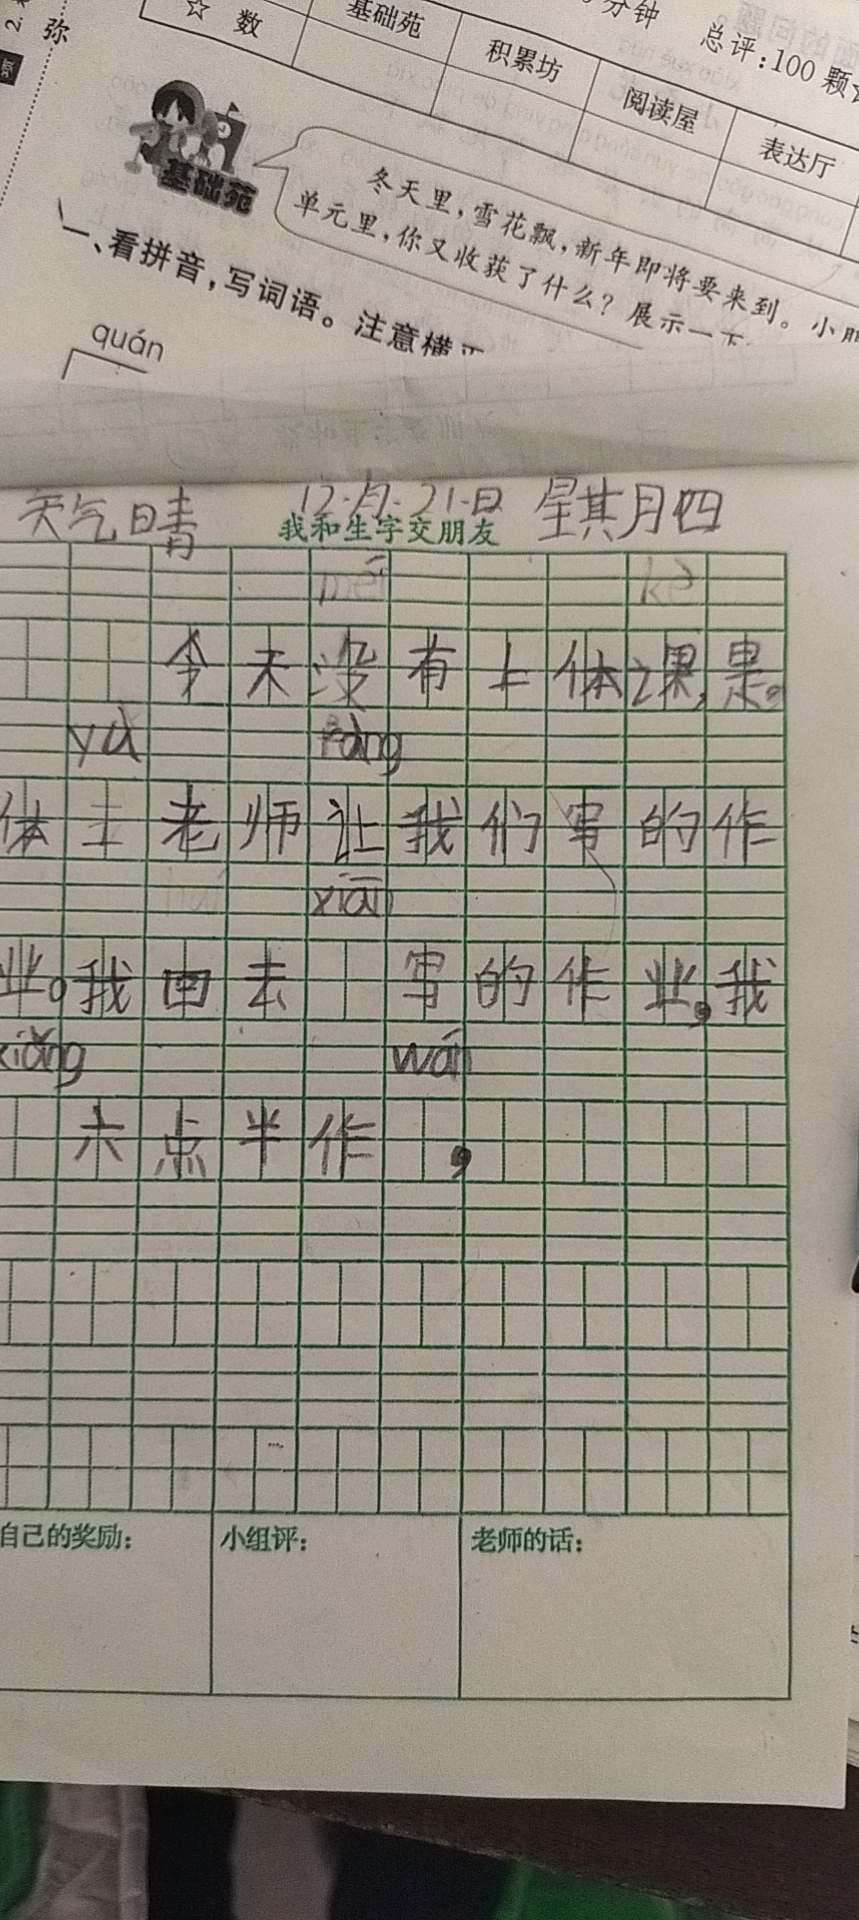 弥
2.
☆ 数
基础苑
积累坊
阅读屋
表达厅
分钟 总评:100颗
基础苑
冬天里，雪花飘，新年即将要来到。小
单元里，你又收获了什么？展示一下
一、看拼音，写词语。注意横
quán
天气晴 12·月·21·日 星其月四
我和生字交朋友
méi kè
今天没有上体课,果。
yù ràng
体土老师让我们写的作
xiān
业。我由去 写的作业,我
xiǎng wán
六点半作 ,
自己的奖励:
小组评:
老师的话: